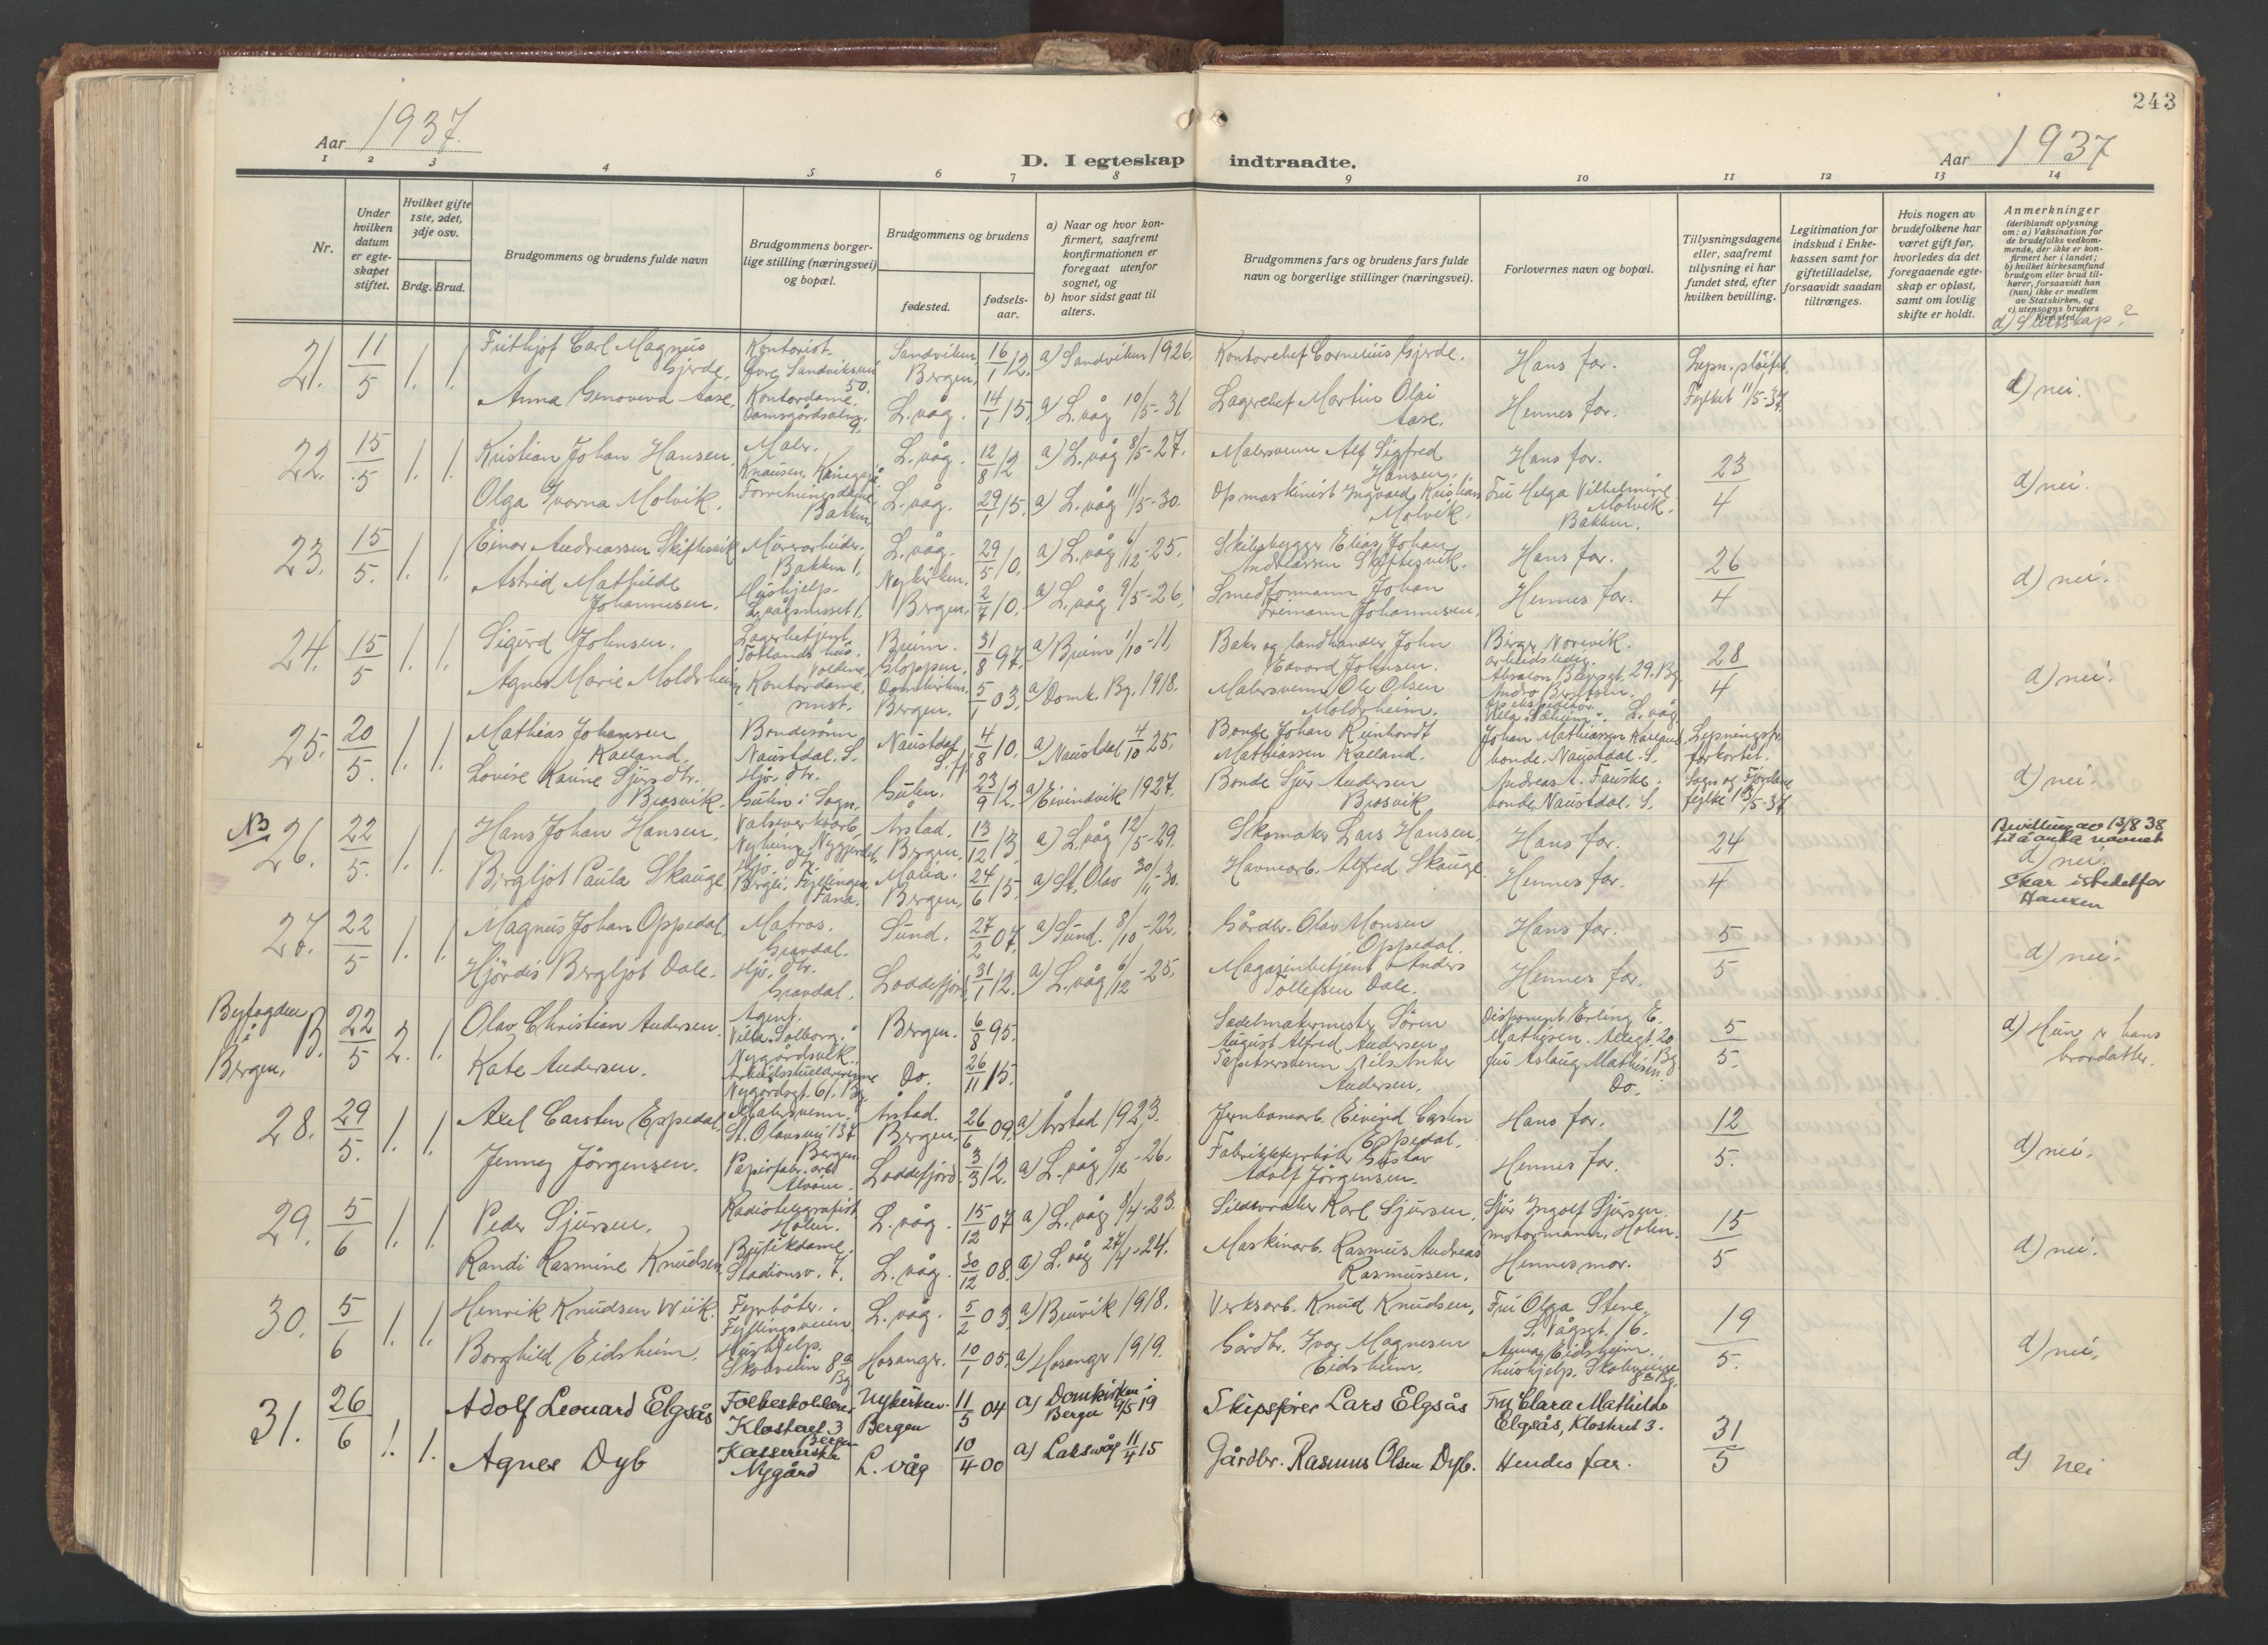 243
Aar 1937.
D. I egteskap indtraadte.
Aar 1937
1 2 3 4 5 6 7 8 9 10 11 12 13 14
Nr.
Under hvilken datum er egteskapet stiftet.
Hvilket gifte 1ste, 2det, 3dje osv.
Brdg. Brud.
Brudgommens og brudens fulde navn
Brudgommens borgerlige stilling (næringsvei) og bopæl.
Brudgommens og brudens
fødested.
fødselsaar.
a) Naar og hvor konfirmert, saafremt konfirmationen er foregaat utenfor sognet, og
b) hvor sidst gaat til alters.
Brudgommens fars og brudens fars fulde navn og borgerlige stillinger (næringsvei).
Forlovernes navn og bopæl.
Tillysningsdagene eller, saafremt tillysning ei har fundet sted, efter hvilken bevilling.
Legitimation for indskud i Enkekassen samt for giftetilladelse, forsaavidt saadan tiltrænges.
Hvis nogen av brudefolkene har været gift før, hvorledes da det foregaaende egteskap er opløst, samt om lovlig skifte er holdt.
Anmerkninger (deriblandt oplysning om: a) Vaksination for de brudefolks vedkommende, der ikke er konfirmert her i landet; b) hvilket kirkesamfund brudgom eller brud tilhører, forsaavidt han (hun) ikke er medlem av Statskirken, og c) utensogns bruders hjemsted.
d) Slektskap?
21. 11/5 1. 1. Frithjof Carl Magnus Gjerde. Kontorist. Øvre Sandviksvei 50. Sandviken Bergen. 16/1 12. a) Sandviken 1926. Kontorchef Cornelius Gjerde. Hans far. Lepn. sløifet. d) nei.
Anna Genoveva Aase. Kontordame. Damsgårdsalm. 9. L.våg. 14/1 15. a) L.våg 10/5-31 Lagerchef Martin Olai Aase. Hennes far. Fylket 11/5-37.
22. 15/5 1. 1. Kristian Johan Hansen. Maler. Knausen, L.våg. 12/8 12 a) L.våg 8/5-27. Malersvenn Alf Sigfred Hansen. Hans far. 23/4 d) nei.
Olga Ivorna Molvik. Forretningsdame Bakken. L.våg. 29/1 15. a) L.våg 11/5-30. Opmaskinist Ingvald Kristian Molvik. Fru Helga Vilhelmine Molvik. Bakken.
23. 15/5. 1. 1. Einar Andreassen Skiftesvik Mürerarbeider. Bakken 1. L.våg. 29/5 10. a) L.våg 6/12-25. Skibsbygger Elias Johan Andreassen Skiftesvik. Hans far. 26/4 d) nei.
Astrid Mathilde Johannesen. Hushjelp. Nykirken. Bergen. 2/7 10. a) L.våg 9/5-26. Smedformann Johan Freimann Johannesen. Hennes far.
24. 15/5 1. 1. Sigurd Johnsen. Lagerbetjent. Totlands hus. Breim. Gloppen. 31/8 97. a) Breim 1/10-11. Baker og landhandler John Edvard Johnsen. Birger Norevik. arbeidsleder. Absalon Beyersgt. 29. Bg. 28/4 d) nei.
Agnes Marie Moldeheim Kontordame. smst. Domkirken. Bergen. 5/1 03. a) Domk. Bg. 1918. Malersvenn Ole Olsen Moldeheim. Andro Berntsen. ekspeditør. L.våg
25. 20/5. 1. 1. Mathias Johansen Kalland. Bondesønn Naustdal. S. Naustdal S.fj. 4/8 10. a) Naustdal 4/10 25. Bonde Johan Reinhardt Mathiassen Kalland. Johan Mathiassen Kalland bonde. Naustdal. S. Lepningsfr. forkortet. d) nei.
Lovise Karine Sjursdtr. Brosvik. Hjv. dtr. Gulen i Sogn. Gulen. 23/9 12. a) Eivindvik 1927. Bonde Sjur Andersen Brosvik Andreas A. Fauske. bonde Naustdal. S. Sogn og Fjordane fylke 13/5-37.
NB 26. 22/5. 1. 1. Hans Johan Hansen. Valseverksarb. Nyhein, Nygjerdet Årstad. Bergen. 13/12 13. a) L.våg 12/5-29. Skomaker Lars Hansen, Hans far. 24/4 Bevilling av 13/8 38 til å anta navnet Skar istedetfor Hansen
Bergljot Paula Skauge Hjv. dtr. Bergli, Fyllingen, Fana. Maria. Bergen. 24/6 15. a) St. Olav 30/11-30. Havnearb. Alfred Skauge. Hennes far. d) nei.
27. 22/5 1. 1. Magnus Johan Oppedal. Matros. Gravdal. Sund. 27/2 07. a) Sund. 8/10-22. Gårdbr. Olav Monsen Oppedal. Hans far. 5/5 d) nei.
Hjördis Bergljot Dale. Hjv. dtr. Gravdal. Loddefjord 31/1 12. a) L.våg 6/12-25. Magasinbetjent Anders Tollefsen Dale. Hennes far.
Byfogden i Bergen. B. 22/5 2. 1. Olav Christian Andersen. Agent. Villa Solborg. Bergen. 6/8 95. Sadelmakermester Sören August Alfred Andersen Disponent Erling E. Mathiesen. Allegt. 20 5/5. d) Hun er hans brordatter.
Kate Andersen. Nygårdsgt. 61. Bg. Do. 26/11 15. Tapetsersvenn Nils Anker Andersen. fru Aslaug Mathiesen. Bg. Do.
28. 29/5. 1. 1. Axel Carsten Eppedal. Malersvenn. St. Olavsvei 137 Bergen Årstad. Bergen. 26/6 09. a) Årstad 1923. Jernbanearb. Eivind Carsten Eppedal. Hans far. 12/5. d) nei.
Jenney Jörgensen. Papirfabr. arb. Alvøen. Loddefjord. 3/3 12. a) L.våg 5/12-26. Fabrikkfyrbøter Gustav Adolf Jörgensen. Hennes far.
29. 5/6 1. 1. Peder Sjursen. Radiotelegrafist Holen. L.våg. 15/12 07 a) L.våg 8/4-23. Sildevraker Karl Sjursen. Sjur Ingolf Sjursen. motormann. Holen. 15/5 d) nei.
Randi Rasmine Knudsen. Butikdame. Stadionsv. 7. L.våg. 30/12 08. a) L.våg 27/4-24. Maskinarb. Rasmus Andreas Rasmussen. Hennes mor.
30. 5/6 1. 1. Henrik Knudsen Wiik. Fyrbøter. Fyllingsveien. L.våg. 5/2 03. a) Bruvik 1918. Verksarb. Knud Knudsen. Fru Olga Stene. L.Vågsgt. 16. 19/5. d) nei.
Borghild Eidsheim. Hushjelp. Skoleveien 8a Bg Hosanger. 10/1 05. a) Hosanger 1919. Gårdbr. Ivar Magnesen Eidsheim. Anna Eidsheim. hushjelp. Skoleveien 8a Bg.
31. 26/6 1. 1. Adolf Leonard Elgsås Folkeskolelærer Klosteret 3 Bergen Nykirken. Bergen 11/5 04 a) Domkirken i Bergen 4/5 19 Skipsfører Lars Elgsås Fru Clara Mathilde Elgsås, Klosteret 3. 31/5 d) Nei
Agnes Dyb Kassererske Nygård L. våg 10/4 00 a) Laksevåg 11/4 15 Gårdbr. Rasmus Olsen Dyb. Hendes far.